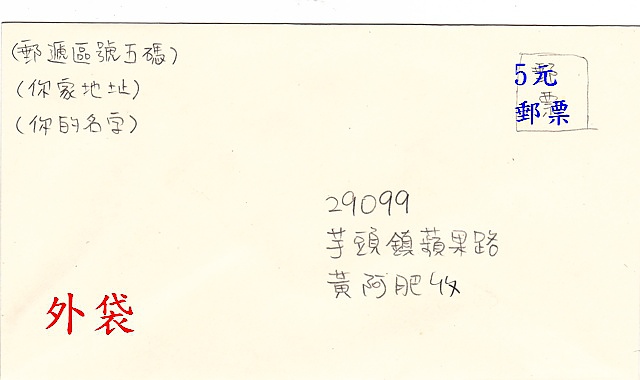 (郵遞區號五碼)
(你家地址)
(你的名字)
郵票
5元
郵票
29099
芋頭鎮蘋果路
黃阿肥收
外袋